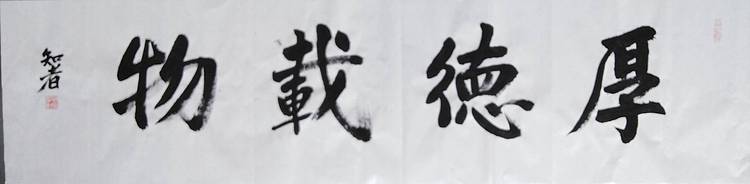 厚德載物
知者